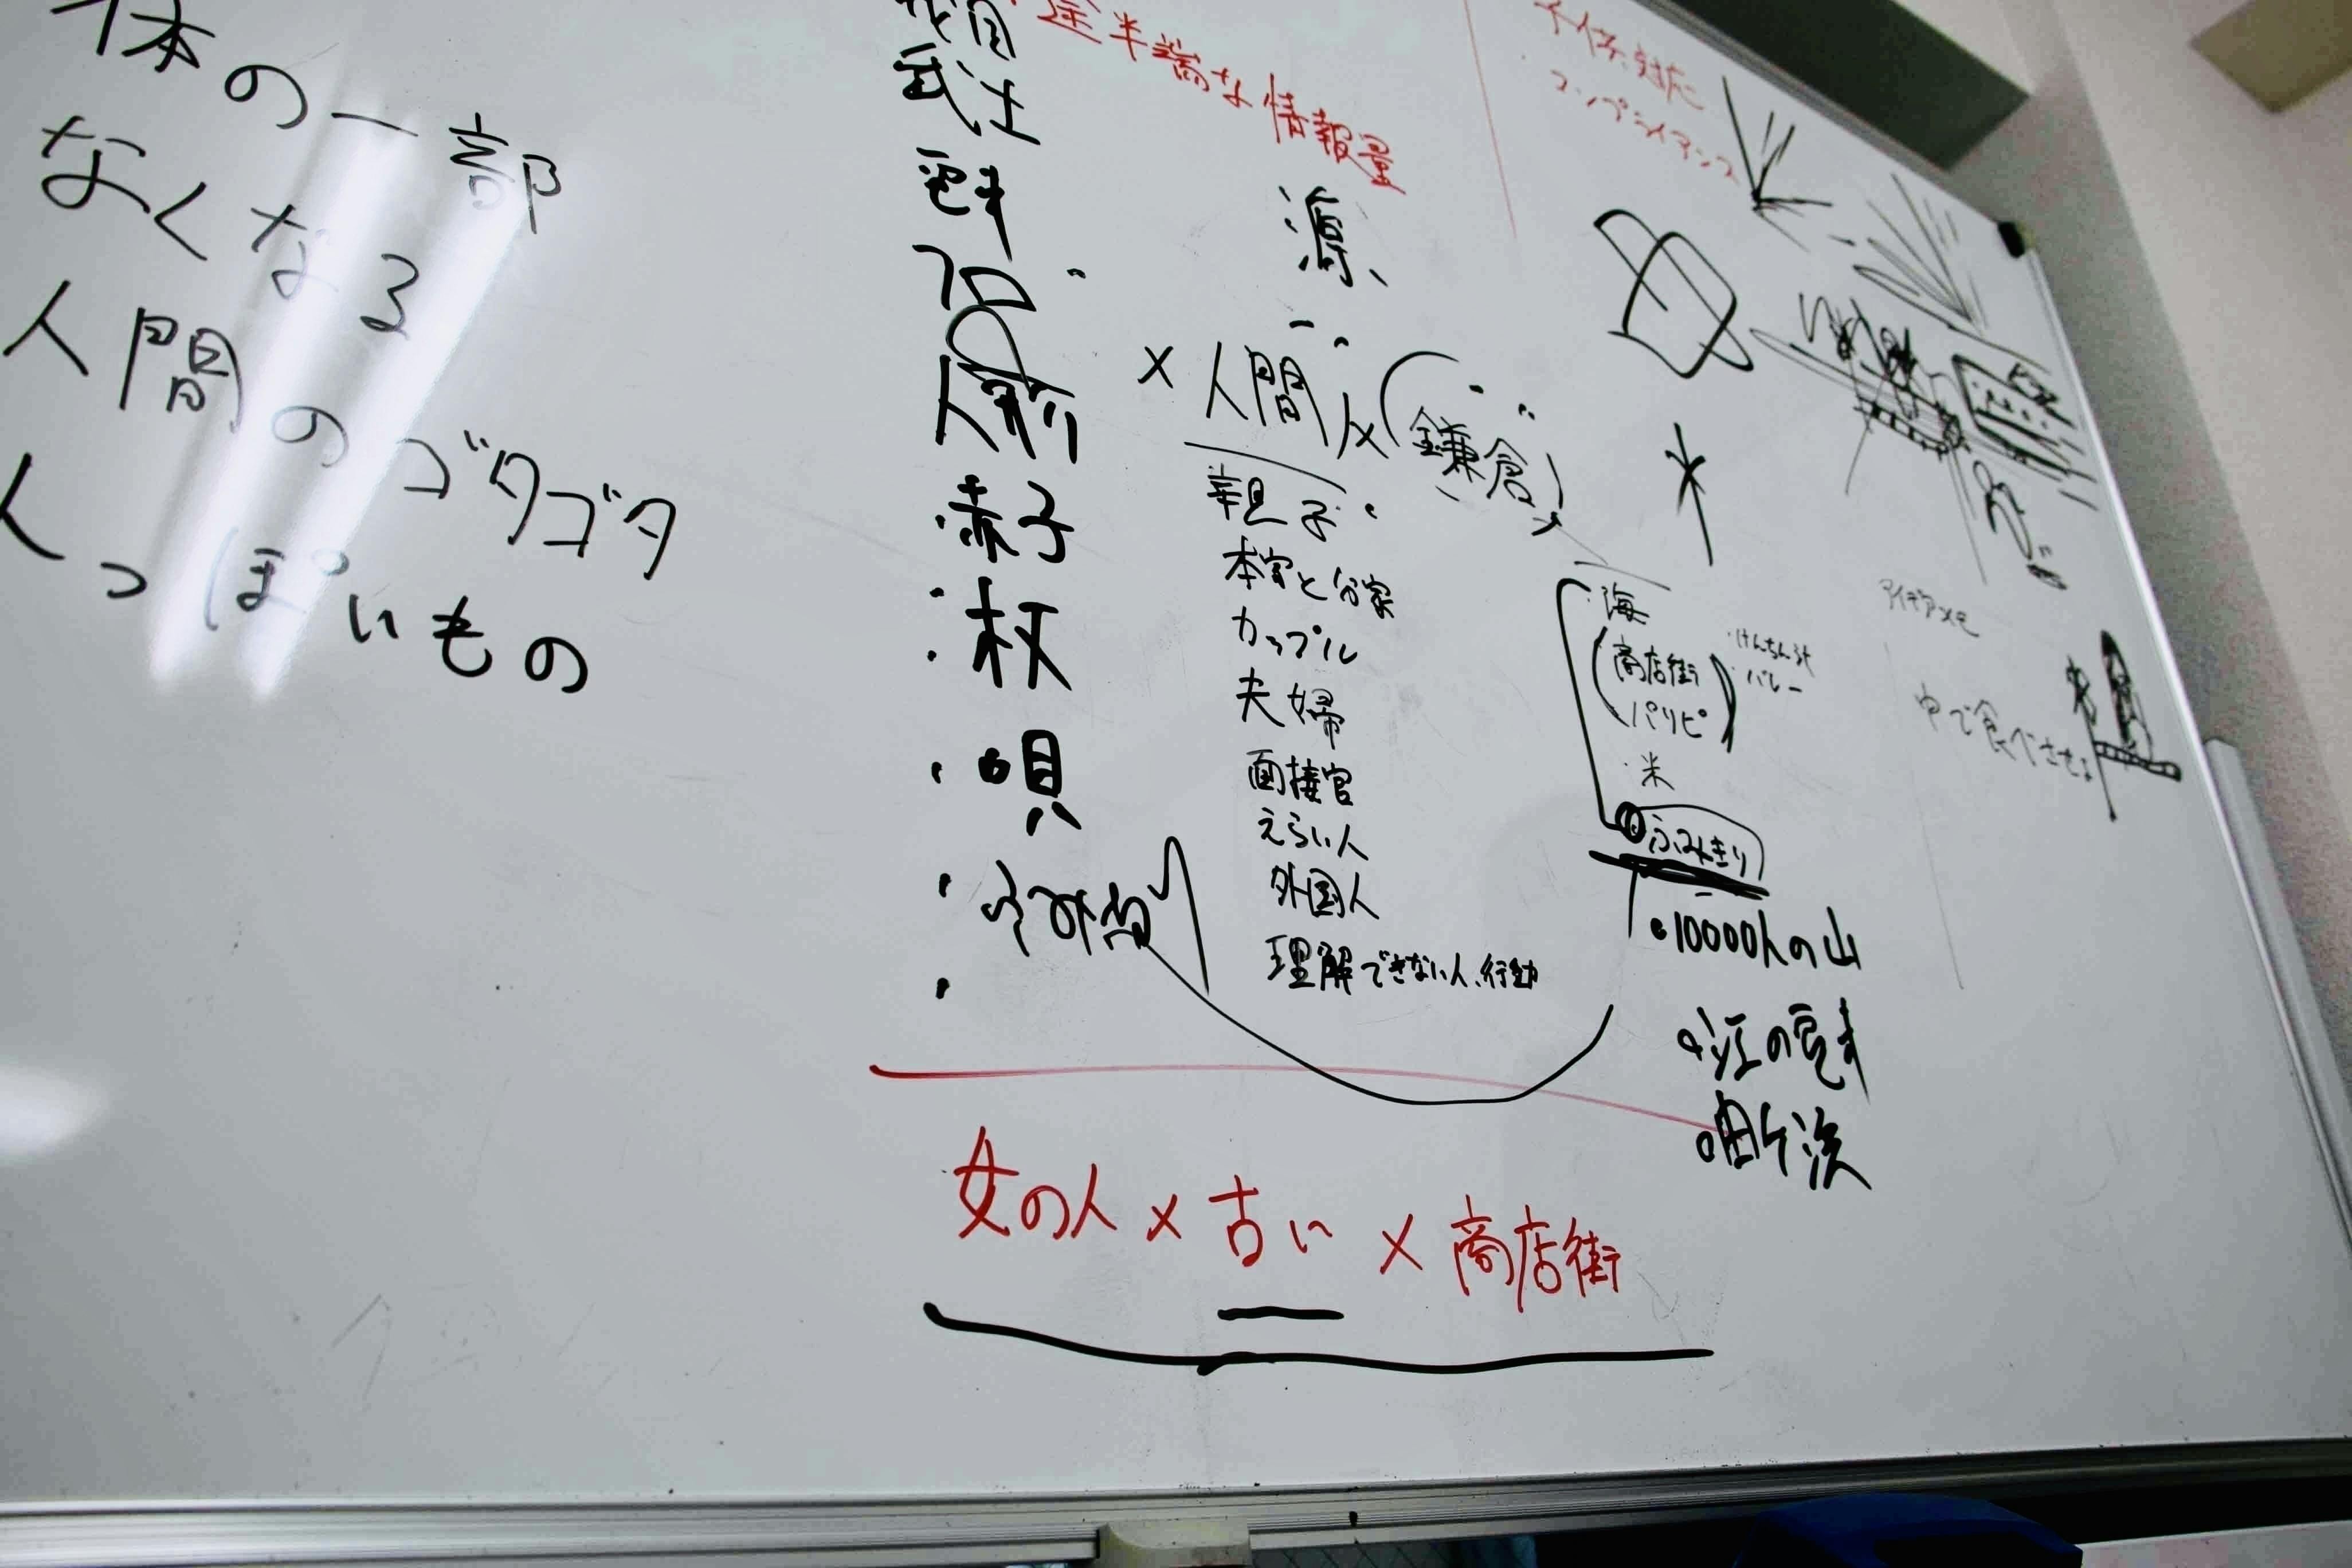 体の一部
なくなる
人間のゴタゴタ
人っぽいもの
途半端な情報量
武士
人前
赤子
枚
唄
源
×人間×(鎌倉)
親子
本家と分家
カップル
夫婦
面接官
えらい人
外国人
理解できない人、行動
子供対応
コンプライアンス
海
商店街
パリピ
けんちん汁
バレー
米
ふみきり
10000人の山
アイデアメモ
中で食べさせ
女の人×古い×商店街